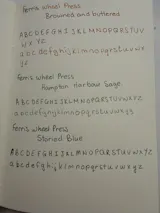 Ferris Wheel Press
Browned and buttered
A B C D E F G H I J K L M N O P Q R S T U V
W X Y Z
a b c d e f g h i j k l m n o p q r s t u v w x
y z
Ferris Wheel Press
Hampton Harbour Sage
A B C D E F G H I J K L M N O P Q R S T U V W X Y Z
a b c d e f g h i j k l m n o p q r s t u v w x y z
Ferris Wheel Press
Storied Blue
A B C D E F G H I J K L M N O P Q R S T U V W X Y Z
a b c d e f g h i j k l m n o p q r s t u v w x y z